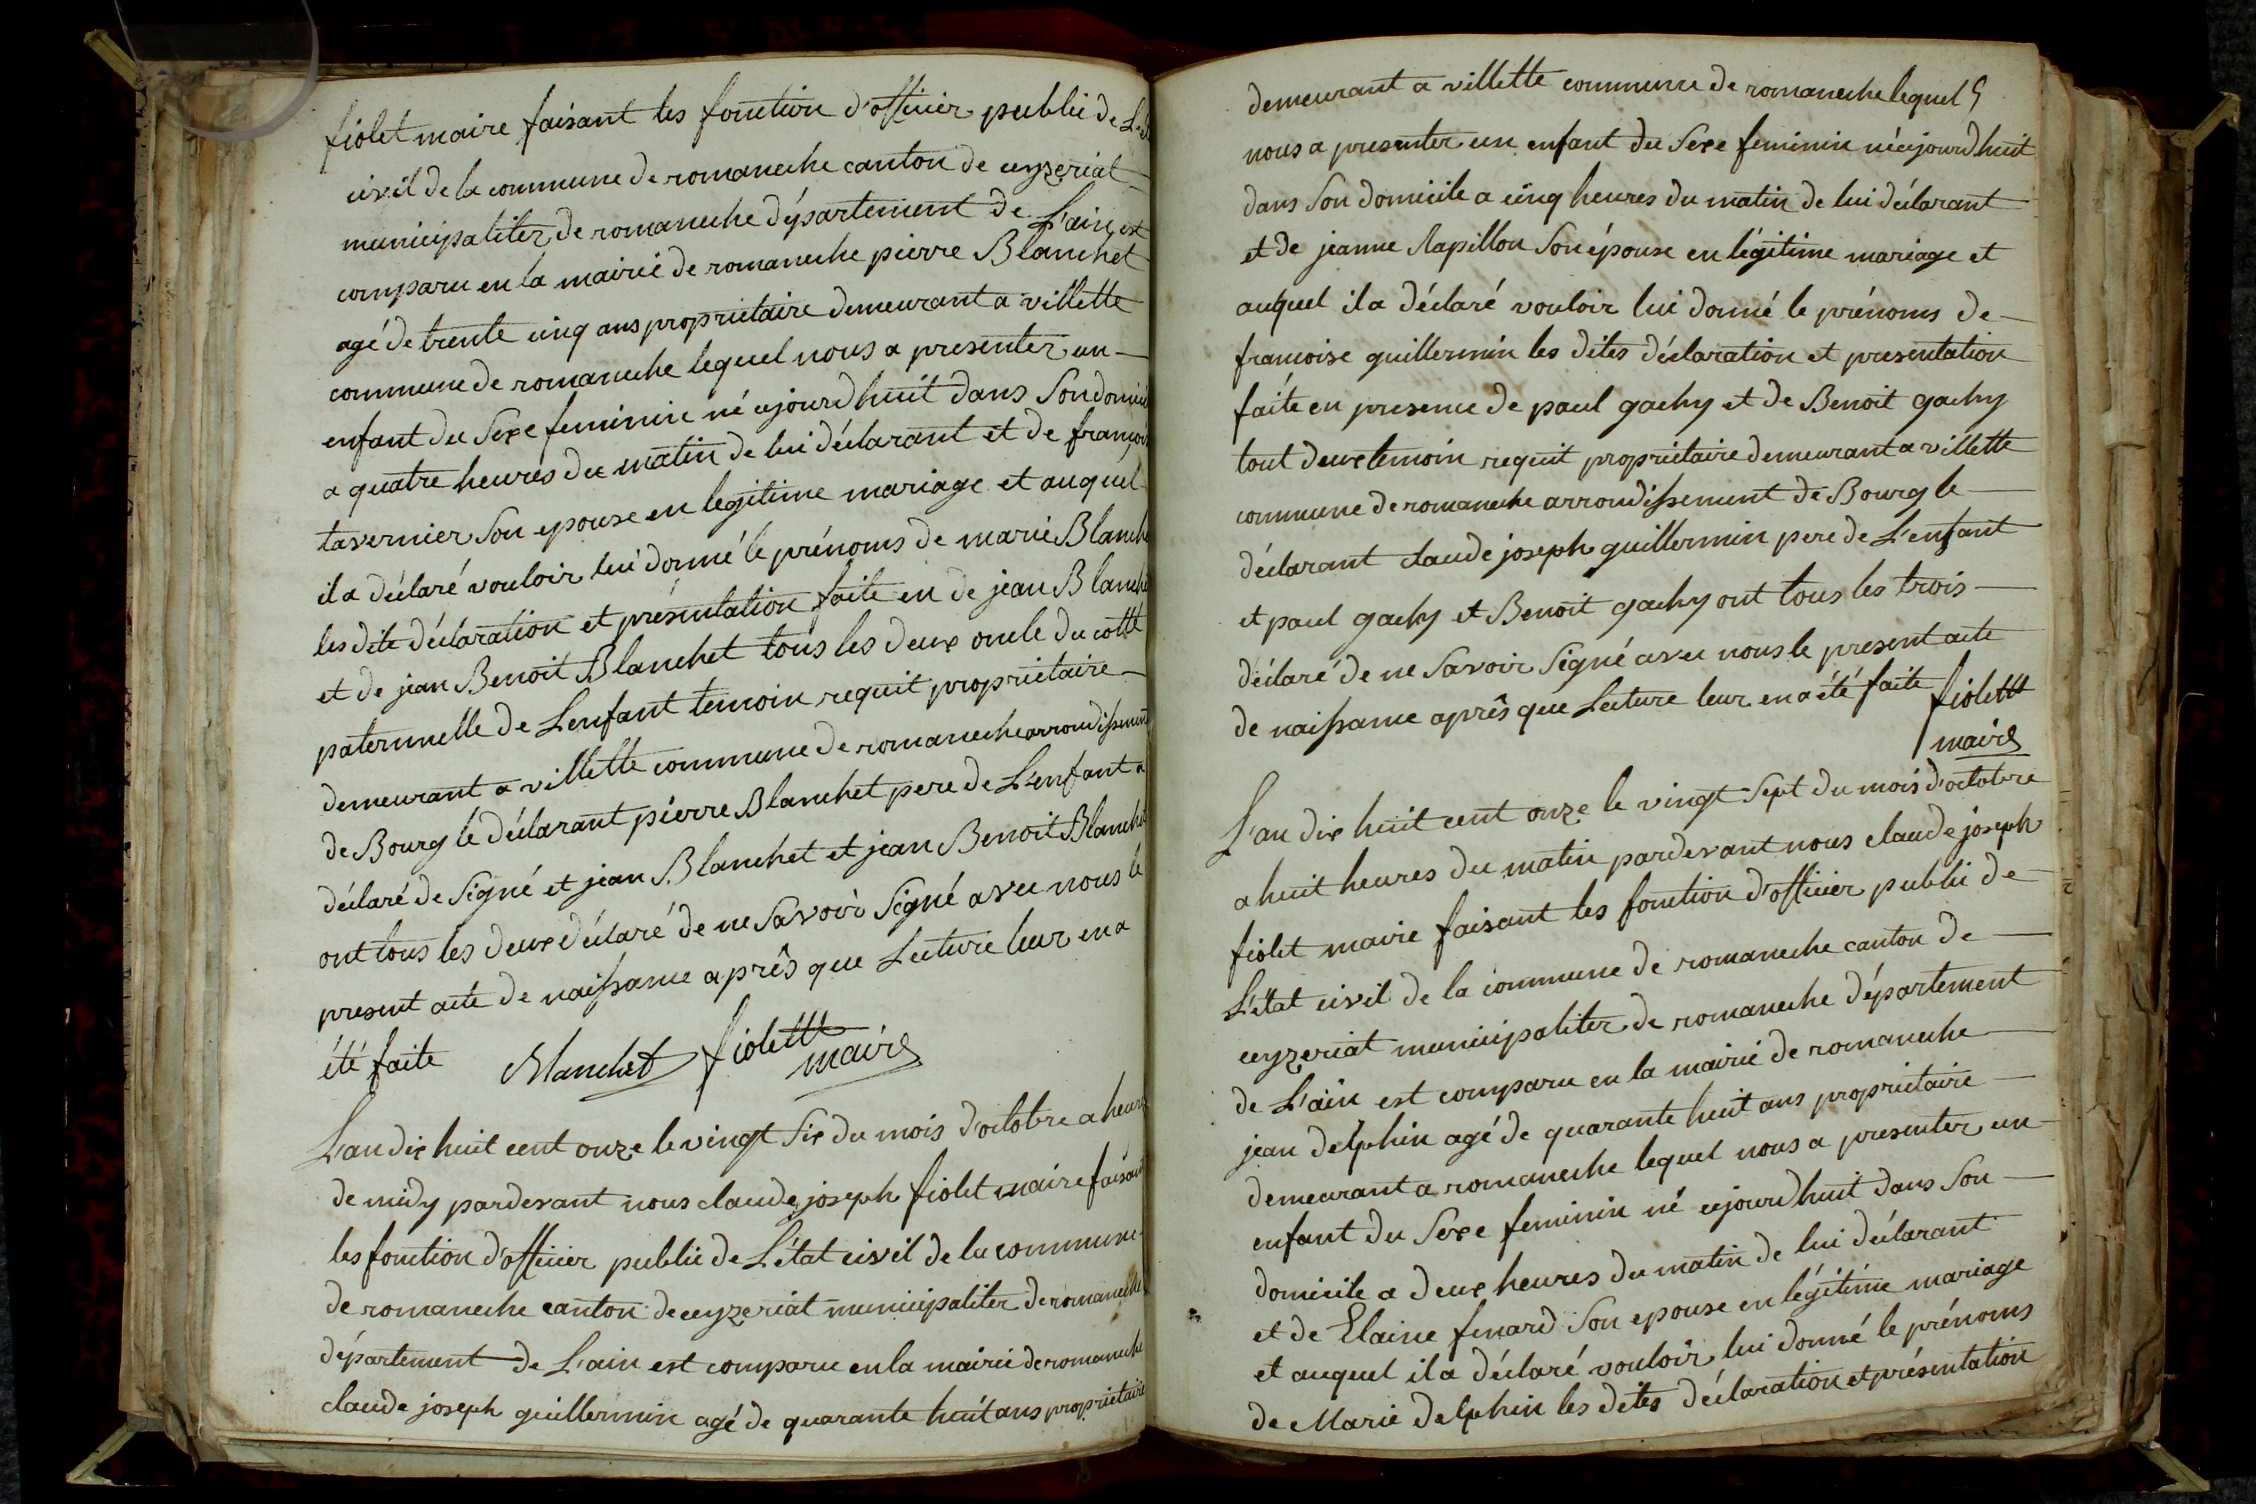 fiolet maire faisant les fonction d'officier public de L'état
civil de la commune de romaneche canton de ceyzeriat
municipaliter de romaneche département de L'ain est
comparu en la mairie de romaneche pierre Blanchet
agé de trente cinq ans propriétaire demeurant a villette
commune de romaneche lequel nous a presenter un
enfant du Sexe feminin né cejourdhuit dans Son domicile
a quatre heures du matin de lui déclarant et de françoise
tavernier Son epouse en legitime mariage et auquel
il a déclaré vouloir lui donné le prénoms de marie Blanchet
les dite déclaration et présentation faite en de jean Blanchet
et de jean Benoit Blanchet tous les deux oncle du cotté
paternnelle de L'enfant temoin requit propriétaire
demeurant a villette commune de romaneche arrondissement
de Bourg le déclarant pierre Blanchet pere de L'enfant a
déclaré de Signé et jean Blanchet et jean Benoit Blanchet
ont tous les deux déclaré de ne Savoir Signé avec nous le
present acte de naissance après que Lecture leur en a
été faite Blanchet fiolettt
maire
L'an dix huit cent onze le vingt Six du mois d'octobre a heure
de midy pardevant nous claude joseph fiolet maire faisant
les fonction d'officier public de L'état civil de la commune
de romaneche canton de ceyzeriat municipaliter de romaneche
département de L'ain est comparu en la mairie de romaneche
claude joseph guillermin agé de quarante huit ans propriétaire
demeurant a villette commune de romaneche lequel
nous a presenter un enfant du Sexe feminin né cejourdhuit
dans Son domicile a cinq heures du matin de lui déclarant
et de jeanne Rapillon Son épouse en légitime mariage et
auquel il a déclaré vouloir lui donné le prénoms de
francoise guillermin les dites déclaration et presentation
faite en presence de paul gachy et de Benoit gachy
tout deux temoin requit propriétaire demeurant a villette
commune de romaneche arrondissement de Bourg le
déclarant claude joseph guillermin pere de L'enfant
et paul gachy et Benoit gachy ont tous les trois
déclaré de ne Savoir Signé avec nous le present acte
de naissance après que Lecture leur en a été faite fiolettt
maire
L'an dix huit cent onze le vingt Sept du mois d'octobre
a huit heures du matin pardevant nous claude joseph
fiolet maire faisant les fonction d'officier public de
L'état civil de la commune de romaneche canton de
ceyzeriat municipaliter de romaneche département
de L'ain est comparu en la mairie de romaneche
jean delphin agé de quarante huit ans propriétaire
demeurant a romaneche lequel nous a presenter un
enfant du Sexe feminin né cejourdhuit dans Son
domicile a deux heures du matin de lui déclarant
et de Elaine fenard Son epouse en légitime mariage
et auquel il a déclaré vouloir lui donné le prénoms
de Marie delphin les dites déclaration et présentation